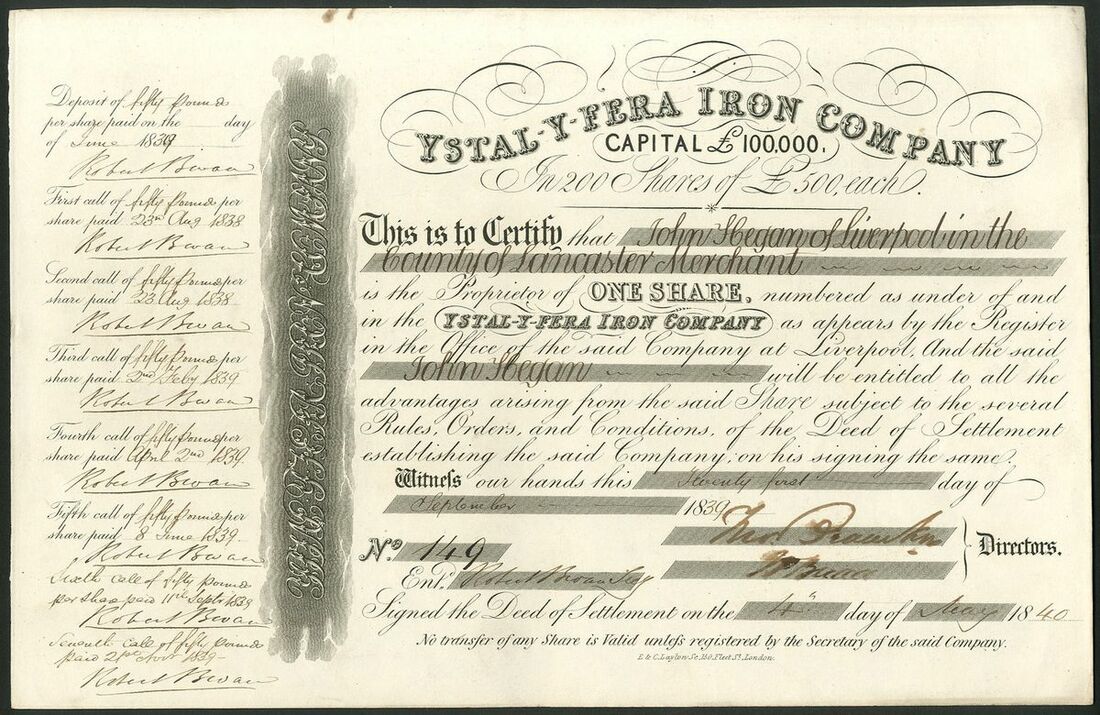 YSTAL-Y-FERA IRON COMPANY
CAPITAL £100,000,
In 200 Shares of £500, each.
This is to Certify that John Hegan of Liverpool in the
County of Lancaster Merchant
is the Proprietor of ONE SHARE, numbered as under of and
in the YSTAL-Y-FERA IRON COMPANY as appears by the Register
in the Office of the said Company at Liverpool, And the said
John Hegan will be entitled to all the
advantages arising from the said Share subject to the several
Rules, Orders, and Conditions, of the Deed of Settlement
establishing the said Company, on his signing the same.
Witness our hands this Twenty first day of
September 1839
Directors.
No. 149
Ent. Robert Bevan Secy
Signed the Deed of Settlement on the 4th day of May 1840
No transfer of any Share is Valid unless registered by the Secretary of the said Company.
E & C. Layton Sc. 150, Fleet St. London.
Deposit of fifty pounds
per share paid on the day
of June 1839
Robert Bevan
First call of fifty pounds per
share paid 23rd Aug 1838
Robert Bevan
Second call of fifty pounds per
share paid 23 Aug 1838
Robert Bevan
Third call of fifty pounds per
share paid 2nd Feby 1839
Robert Bevan
Fourth call of fifty pounds per
share paid April 2nd 1839.
Robert Bevan
Fifth call of fifty pounds per
share paid 8 June 1839.
Robert Bevan
Sixth call of fifty pounds
per share paid 11th Septr 1839
Robert Bevan
Seventh Call of fifty pounds
paid 21st Novr 1839
Robert Bevan